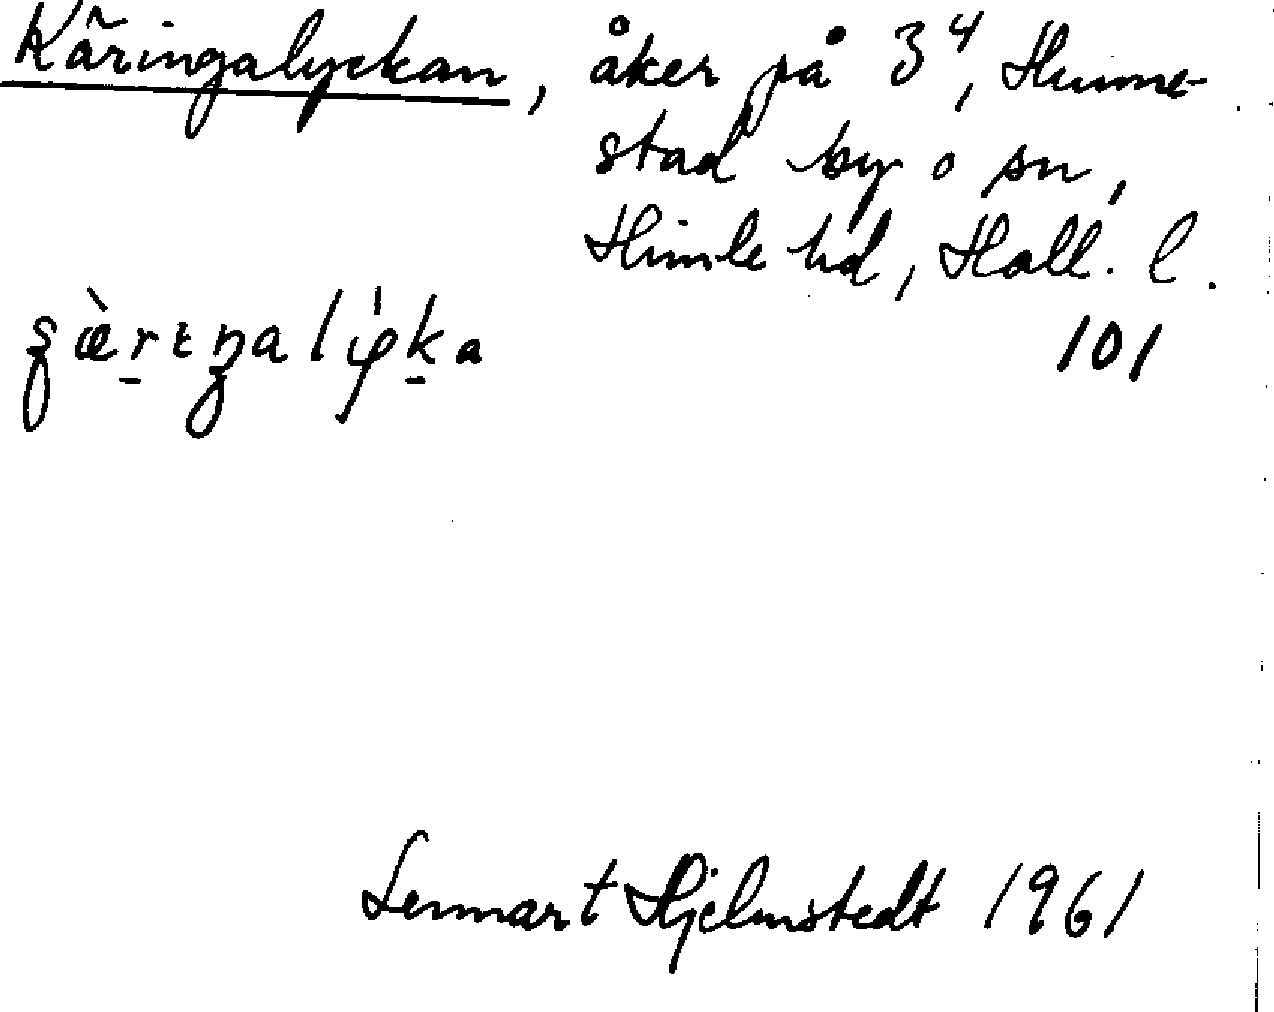 Käringalyckan, åker på 3⁴, Hunne-
stad by o sn,
Himle hd, Hall. l.
101
Lennart Hjelmstedt 1961